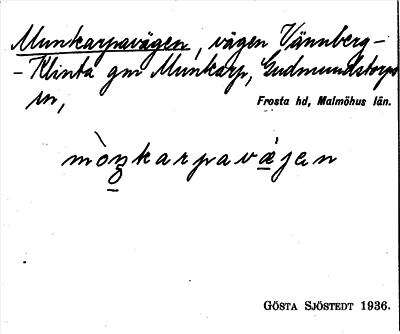 Munkarpavägen, vägen Vännberg-
-Klinta gm Munkarp, Gudmundstorps
sn,
Frosta hd, Malmöhus län.
mòŋkarpavæ̀jen
GÖSTA SJÖSTEDT 1936.